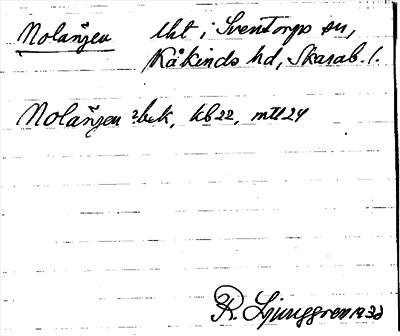 Nolängen Uht i Sventorps sn,
Kåkinds hd, Skarab. l.
Nolängen bek, kb 22, mtl 24
R. Ljunggren 1930